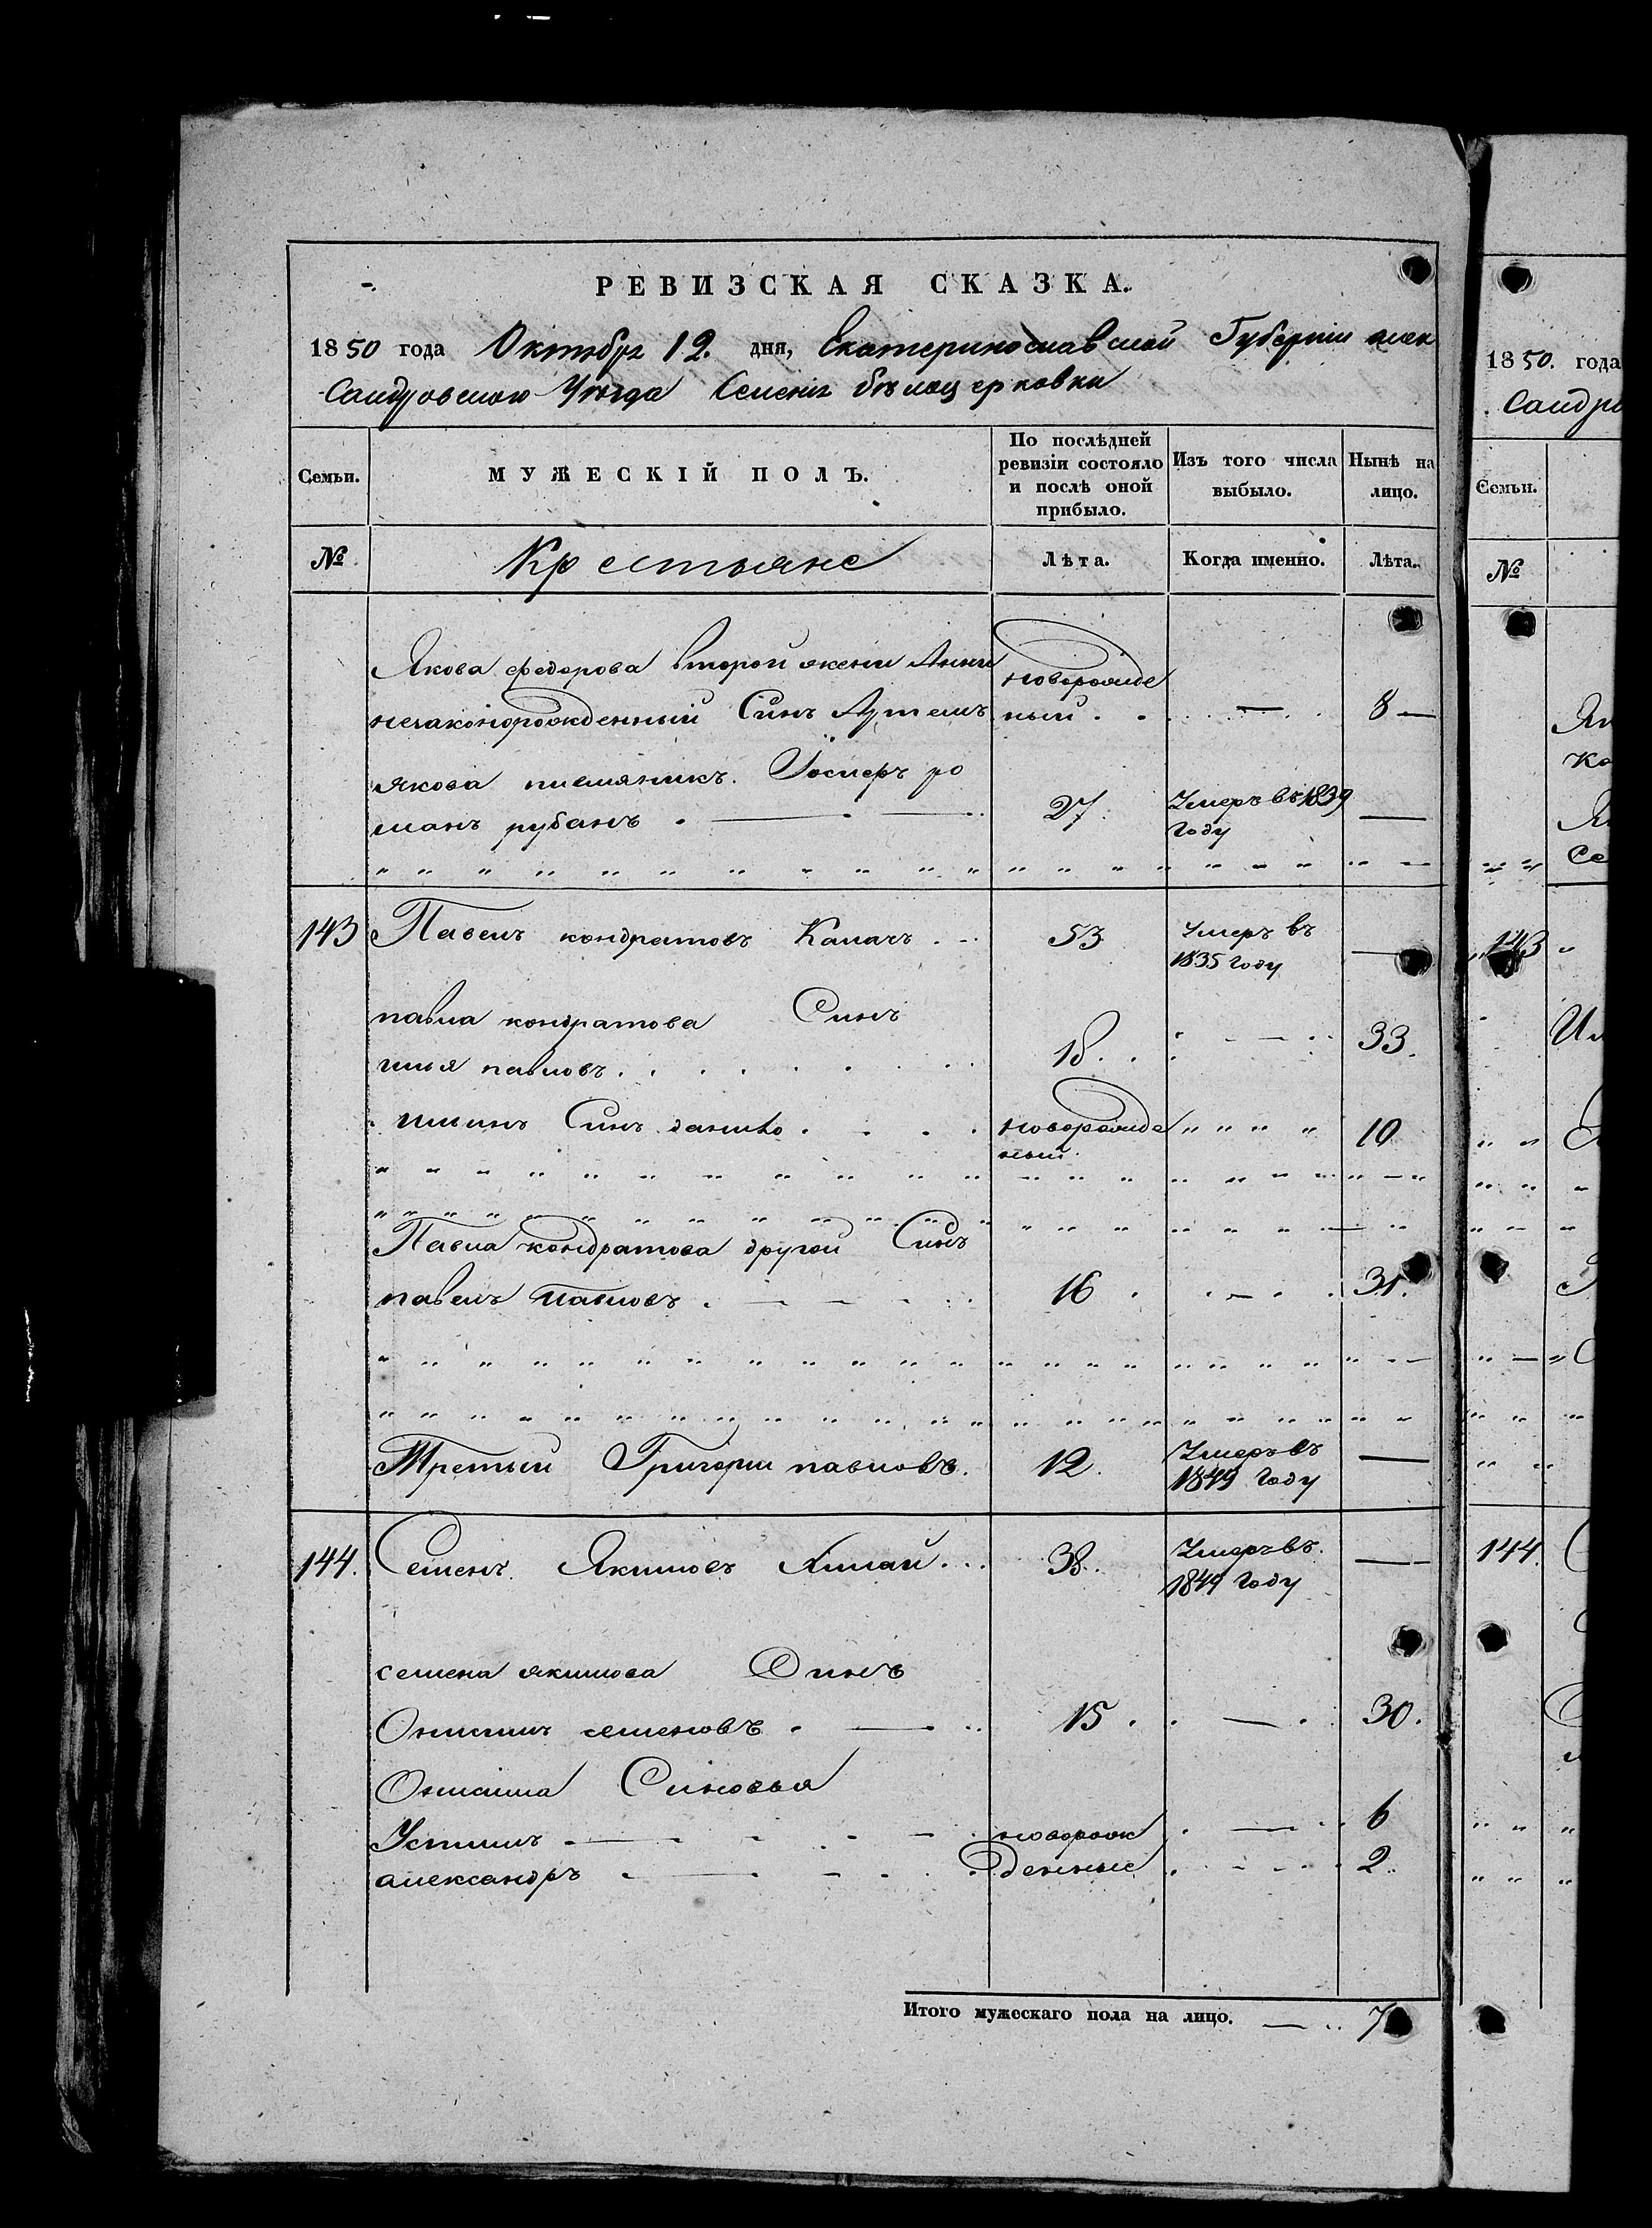 РЕВИЗСКАЯ СКАЗКА.
1850 года Октября 12. дня, Екатеринославской Губернии алек
сандровского Уезда Селения белоцерковки
Семьи. МУЖЕСКІЙ ПОЛЪ. По послѣдней ревизіи состояло и послѣ оной прибыло. Изъ того числа выбыло. Нынѣ на лицо.
№ Крестьяне Лѣта. Когда именно. Лѣта.
Якова федорова второй жени Анни новорожде
незаконорожденный Синъ Артемъ ный 8
якова племяникъ ро
манъ рубанъ 27 Умеръ въ 1839 году
143 Павелъ кондратовъ Калачъ 53 Умеръ въ 1835 году
павла кондратова Синъ
илья павловъ 18 33.
илиинъ Синъ данило новорожде ный 10
Павла кондратова другой Синъ
павелъ павловъ 16 31.
Третьи Григории павловъ. 12. Умеръ въ 1849 году
144. Семенъ Якимовъ 38. Умеръ въ 1849 году
семена якимова Синъ
Онисимъ семеновъ 15 30.
Онисима Синовья
Устимъ новорож 6
александръ денные 2
Итого мужескаго пола на лицо. 7
1850. года
Сандро
Семьи.
№
143
144.